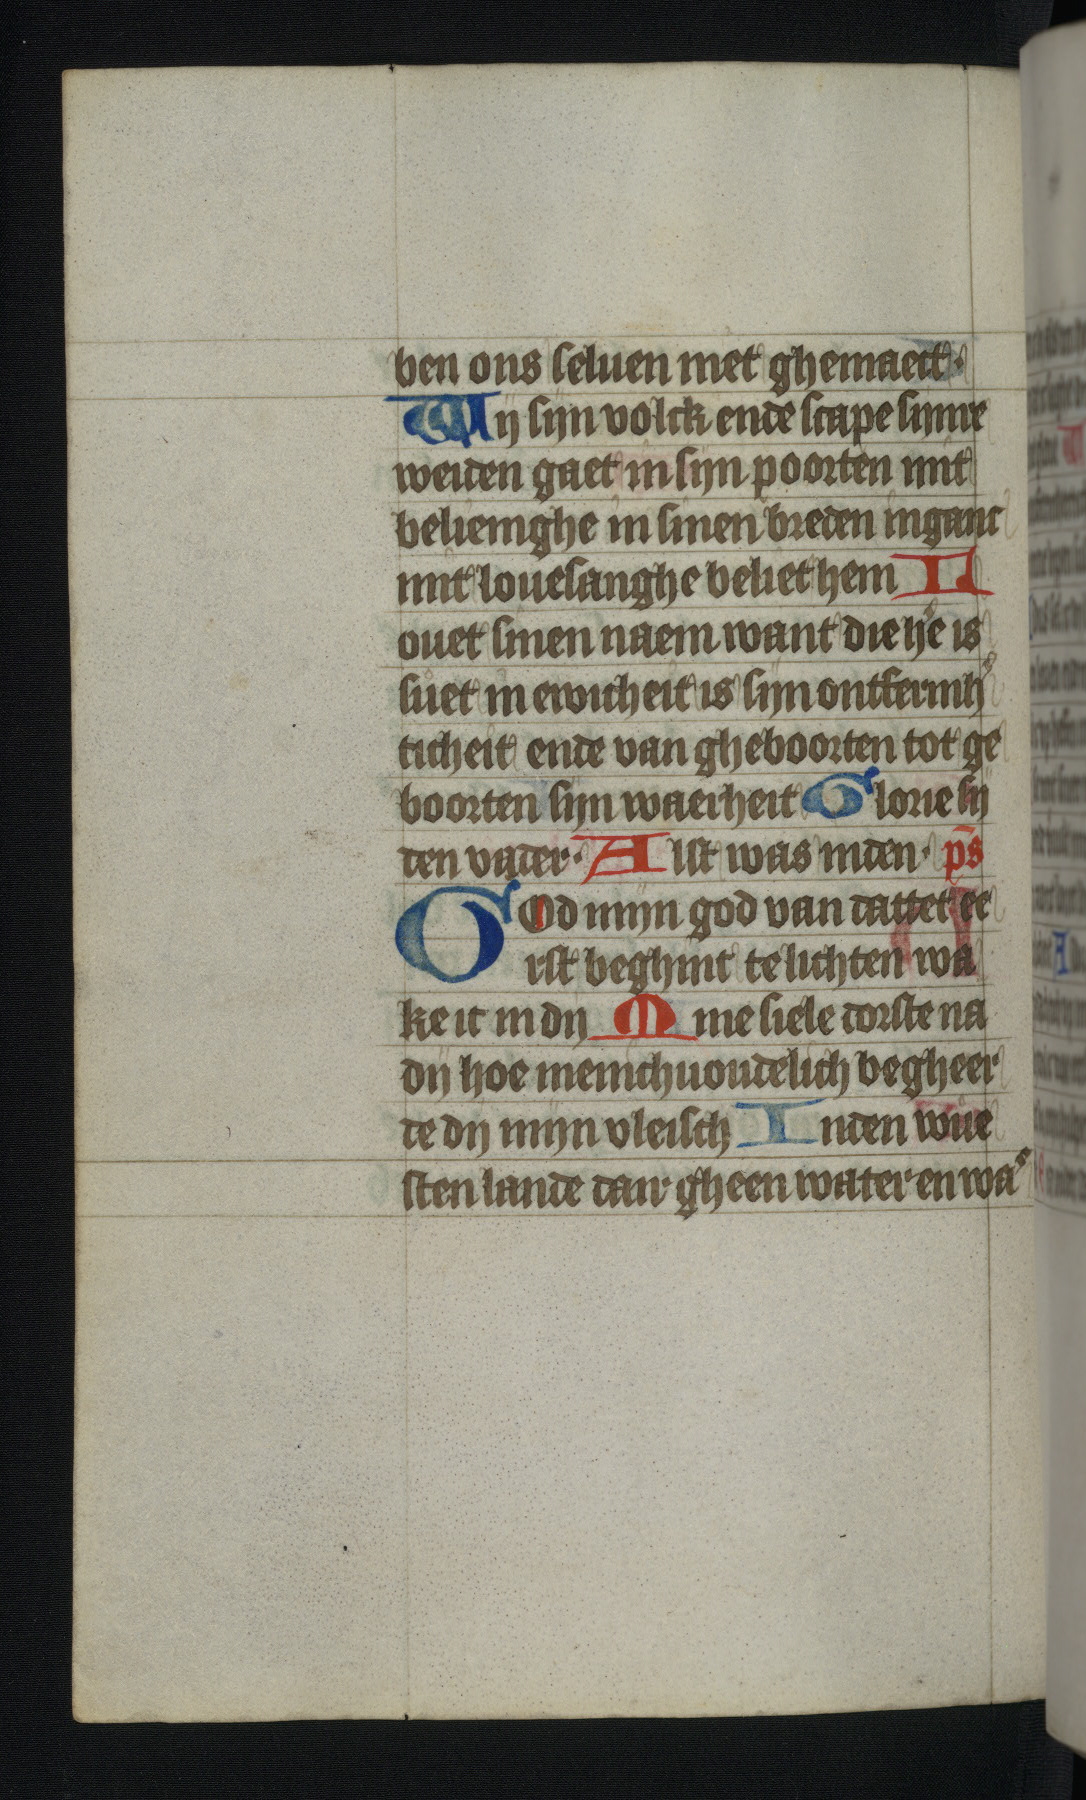 ben ons seluen niet ghemaect.
Wij sijn volck ende scape sijnre
weiden gaet in sijn poorten mit
beliemghe in sinen vreden inganc
mit louesanghe beliet hem L
ouet sinen naem want die he is
suet in ewicheit is sijn ontfermh
ticheit ende van gheboorten tot ge
boorten sijn waerheit Glorie sij
den vader. Alst was inden. ps
GOd mijn god van dattet ee
rst beghint te lichten wa
ke ic in dij Mine siele dorste na
dij hoe menichuoudelich begheer
de dij mijn vleisch Inden wue
sten lande dair gheen water en wa